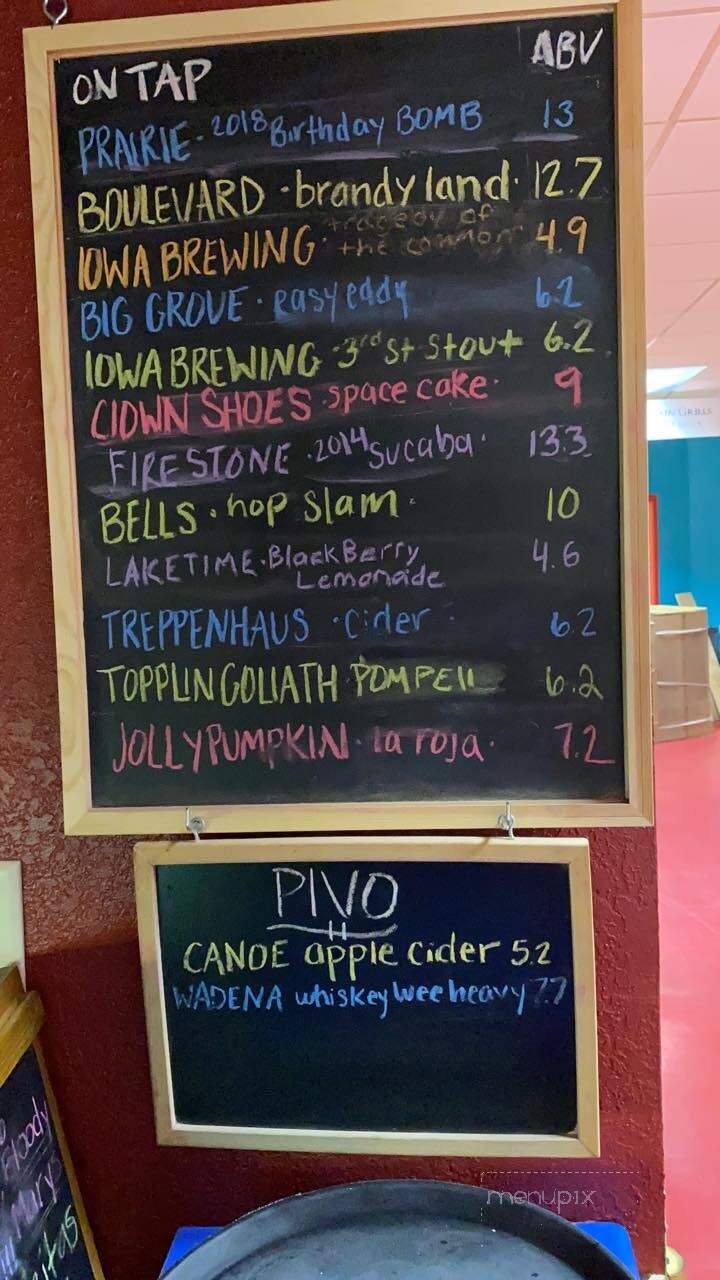 ON TAP ABV
PRAIRIE · 2018 Birthday BOMB 13
BOULEVARD · brandy land · 12.7
IOWA BREWING · tragedy of the common 4.9
BIG GROVE · easy eddy 6.2
IOWA BREWING · 3rd St Stout 6.2
CLOWN SHOES · space cake · 9
FIRESTONE · 2014 Sucaba · 13.3
BELLS · hop slam · 10
LAKETIME · BlackBerry 4.6
Lemonade
TREPPENHAUS · cider · 6.2
TOPPLIN GOLIATH POMPEII 6.2
JOLLY PUMPKIN · la roja · 7.2
PIVO
CANOE apple cider 5.2
WADENA whiskey wee heavy 7.7
Bloody
Mary
menupix